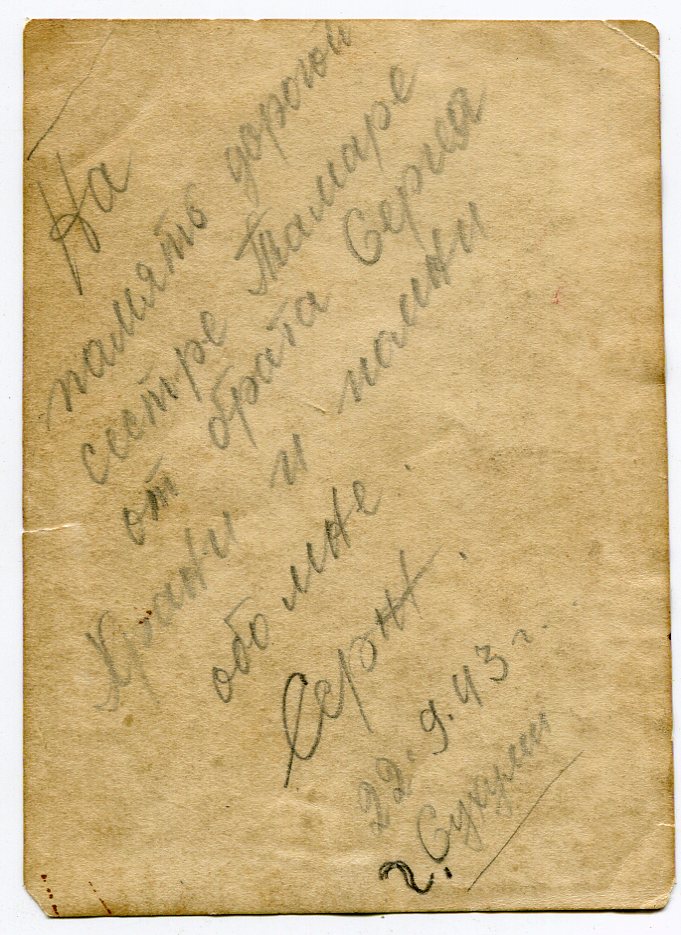 На
память дорогой
сестре Тамаре
от брата Сержа
Храни и помни
обо мне.
Серж.
22.9.43 г.
г. Сухуми